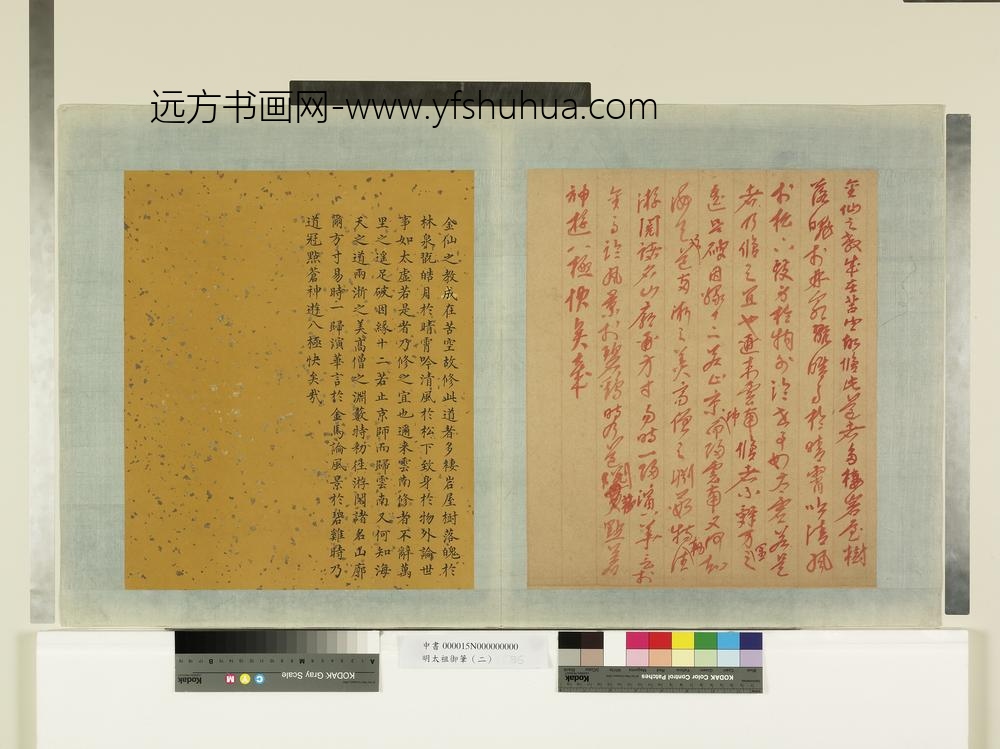 远方书画网-www.yfshuhua.com
金仙之教成在苦空故修此道者多棲岩屋樹
落魄於林泉翫皓月於晴霄吟清風
於松下致身於物外論世事如太虛若是
者乃修之宜也邇來雲南修者不辭萬里之
遙足破因緣十二若止京師而歸雲南又何知
海天之道兩浙之美高僧之淵藪特勑往
游閱諸名山廓爾方寸易時一歸演華言於
金馬論風景於碧雞時乃道冠點蒼
神遊八極快矣哉
金仙之教成在苦空故修此道者多棲岩屋樹落魄於
林泉翫皓月於晴霄吟清風於松下致身於物外論世
事如太虛若是者乃修之宜也邇來雲南修者不辭萬
里之遙足破因緣十二若止京師而歸雲南又何知海
天之道兩浙之美高僧之淵藪特勑徃游閱諸名山廓
爾方寸易時一歸演華言於金馬論風景於碧雞時乃
道冠點蒼神遊八極快矣哉
申書 000015N000000000
明太祖御筆（二）
KODAK Gray Scale
Kodak
C Y M
KODAK Color Control Patches
Kodak